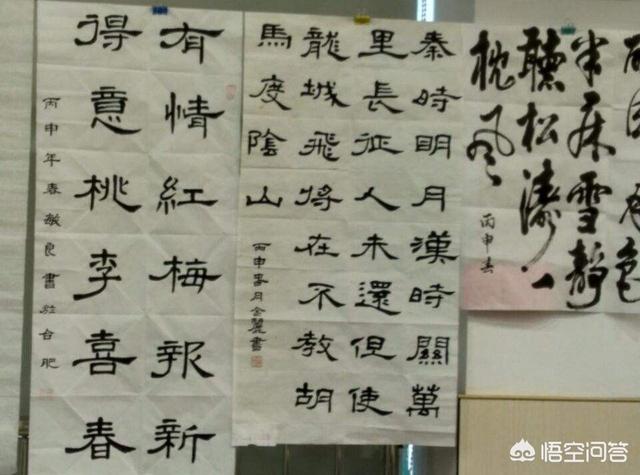 有情紅梅報新
得意桃李喜春
丙申年春敏良書於合肥
秦時明月漢時關萬
里長征人未還但使
龍城飛將在不教胡
馬度陰山
丙申春月金麗書
半床雪靜
聽松濤一
枕風
丙申春
悟空问答